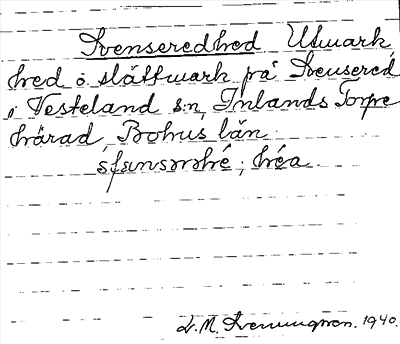 Svenseredhed Utmark,
hed o. slåttmark på Svensered
i Vesteland s:n, Inlands Torpe
härad, Bohus län.
; héa.
L. M. Svenungson. 1940.